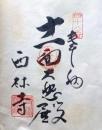 奉納
十一面大悲殿
西林寺